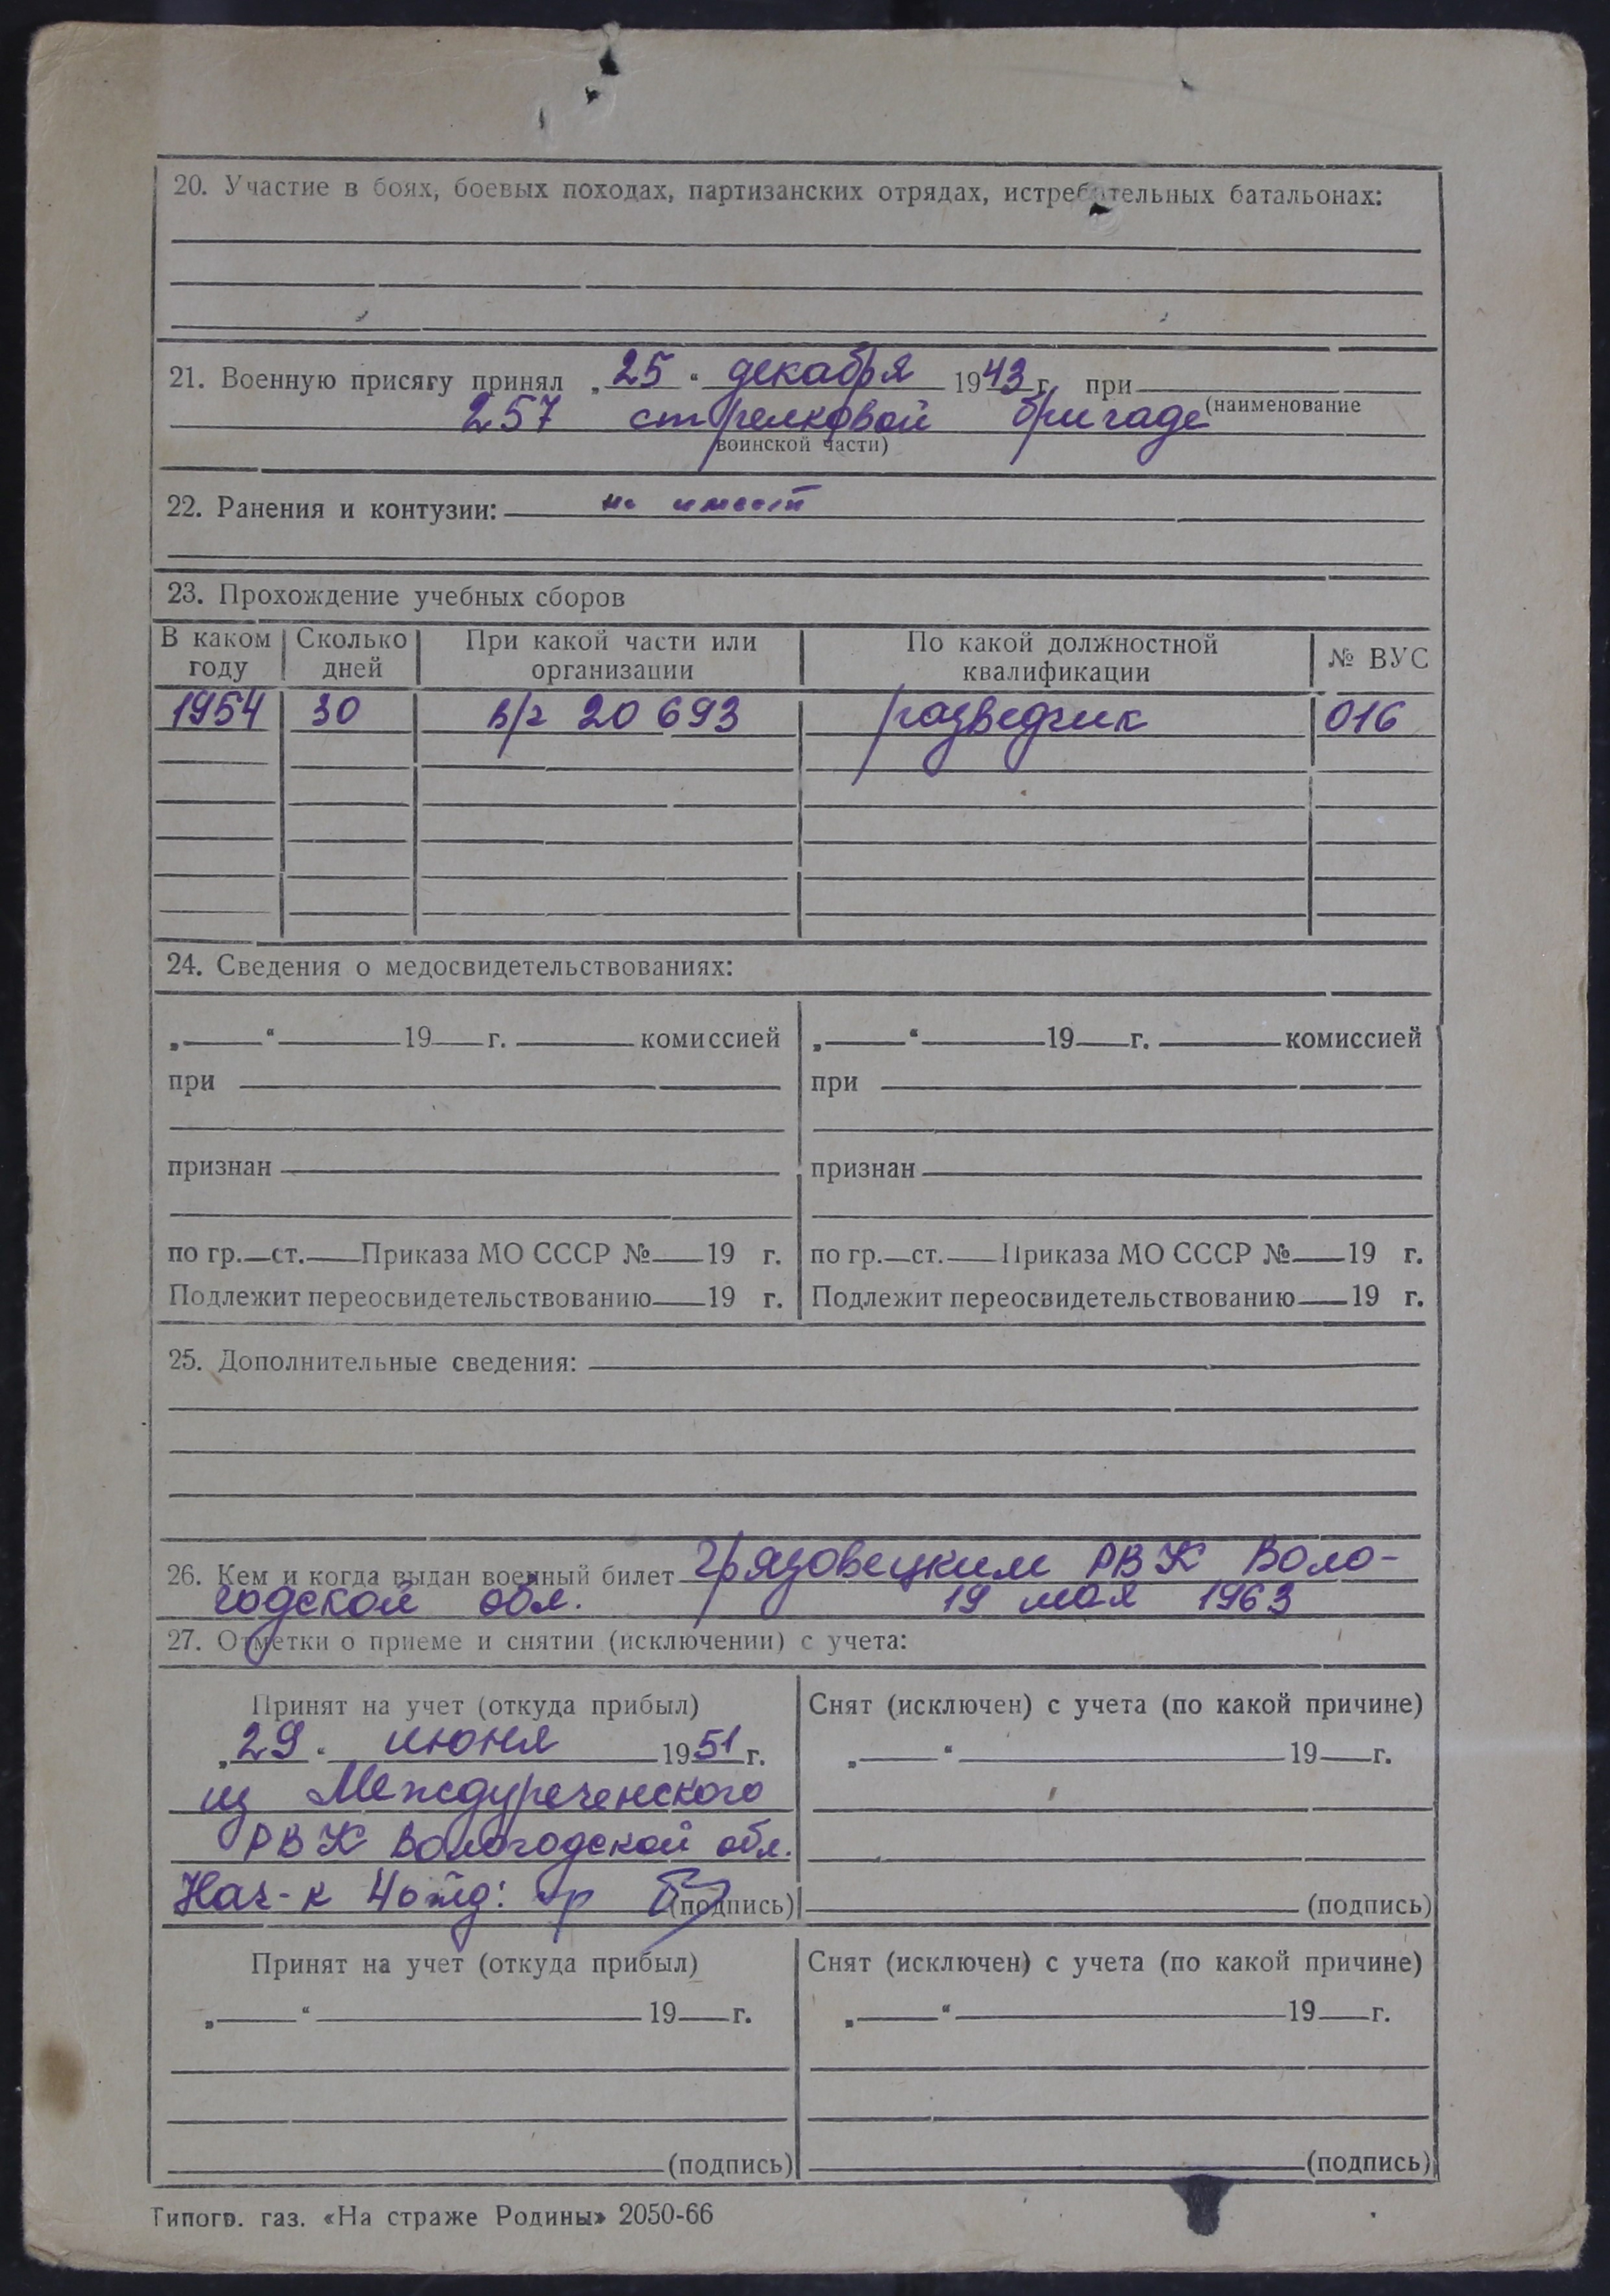 20. Участие в боях, боевых походах, партизанских отрядах, истребительных батальонах:
21. Военную присягу принял „25“ декабря 1943 г. при
257 стрелковой бригаде (наименование
воинской части)
22. Ранения и контузии: не имеет
23. Прохождение учебных сборов
В каком году Сколько дней При какой части или организации По какой должностной квалификации № ВУС
1954 30 в/ч 20693 разведчик 016
24. Сведения о медосвидетельствованиях:
„ “ 19 г. комиссией „ “ 19 г. комиссией
при при
признан признан
по гр. ст. Приказа МО СССР № 19 г. по гр. ст. Приказа МО СССР № 19 г.
Подлежит переосвидетельствованию 19 г. Подлежит переосвидетельствованию 19 г.
25. Дополнительные сведения:
26. Кем и когда выдан военный билет Грязовецким РВК Воло-
годской обл. 19 мая 1963
27. Отметки о приеме и снятии (исключении) с учета:
Принят на учет (откуда прибыл) Снят (исключен) с учета (по какой причине)
„29“ июня 1951 г. „ “ 19 г.
из Междуреченского
РВК Вологодской обл.
Нач-к 4 отд: (подпись) (подпись)
Принят на учет (откуда прибыл) Снят (исключен) с учета (по какой причине)
„ “ 19 г. „ “ 19 г.
(подпись) (подпись)
Типогр. газ. «На страже Родины» 2050-66